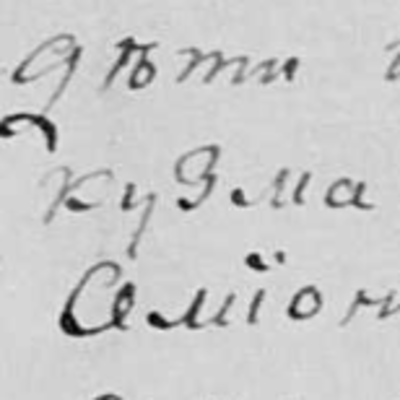 дѣти
Кузма
Семіон